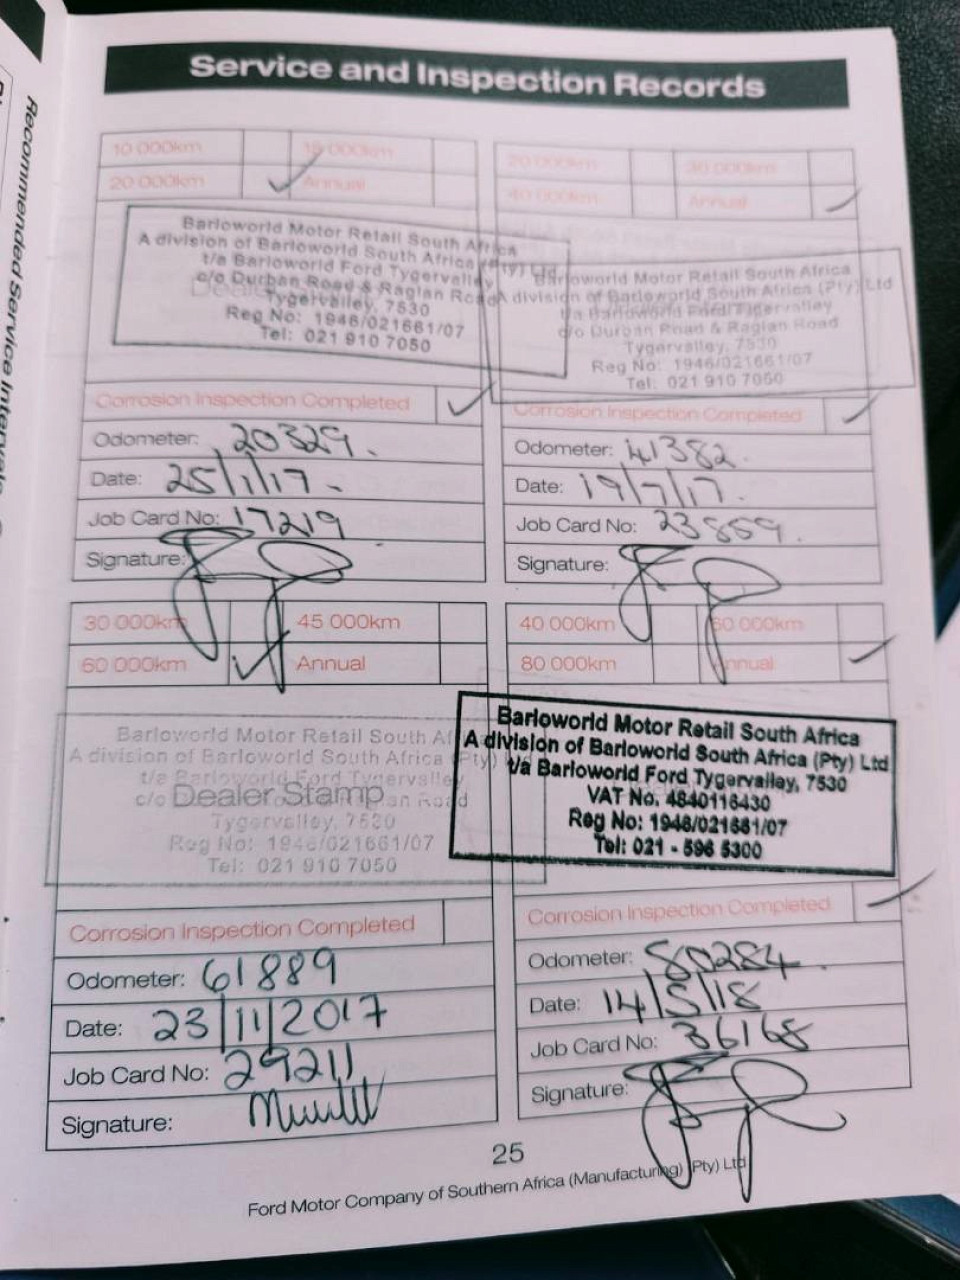 Recommended Service Intervals
Service and Inspection Records
10 000km 15 000km
20 000km Annual
Barloworld Motor Retail South Africa
A division of Barloworld South Africa (Pty) Ltd
t/a Barloworld Ford Tygervalley
c/o Durban Road & Raglan Road
Tygervalley, 7530
Reg No: 1946/021661/07
Tel: 021 910 7050
Corrosion Inspection Completed
Odometer: 20329.
Date: 25/1/17.
Job Card No: 17219
Signature:
20 000km 30 000km
40 000km Annual
Barloworld Motor Retail South Africa
A division of Barloworld South Africa (Pty) Ltd
t/a Barloworld Ford Tygervalley
c/o Durban Road & Raglan Road
Tygervalley, 7530
Reg No: 1946/021661/07
Tel: 021 910 7050
Corrosion Inspection Completed
Odometer: 41382.
Date: 19/7/17.
Job Card No: 23859.
Signature:
30 000km 45 000km
60 000km Annual
Barloworld Motor Retail South Af
A division of Barloworld South Africa (Pty)
t/a Barloworld Ford Tygervalley
Dealer Stamp
c/o Road
Tygervalley, 7530
Reg No: 1946/021661/07
Tel: 021 910 7050
Corrosion Inspection Completed
Odometer: 61889
Date: 23/11/2017
Job Card No: 29211
Signature:
40 000km 60 000km
80 000km Annual
Barloworld Motor Retail South Africa
A division of Barloworld South Africa (Pty) Ltd
t/a Barloworld Ford Tygervalley, 7530
VAT No. 4840116430
Reg No: 1946/021661/07
Tel: 021 - 596 5300
Corrosion Inspection Completed
Odometer: 80284.
Date: 14/5/18
Job Card No: 36168
Signature:
25
Ford Motor Company of Southern Africa (Manufacturing) (Pty) Ltd